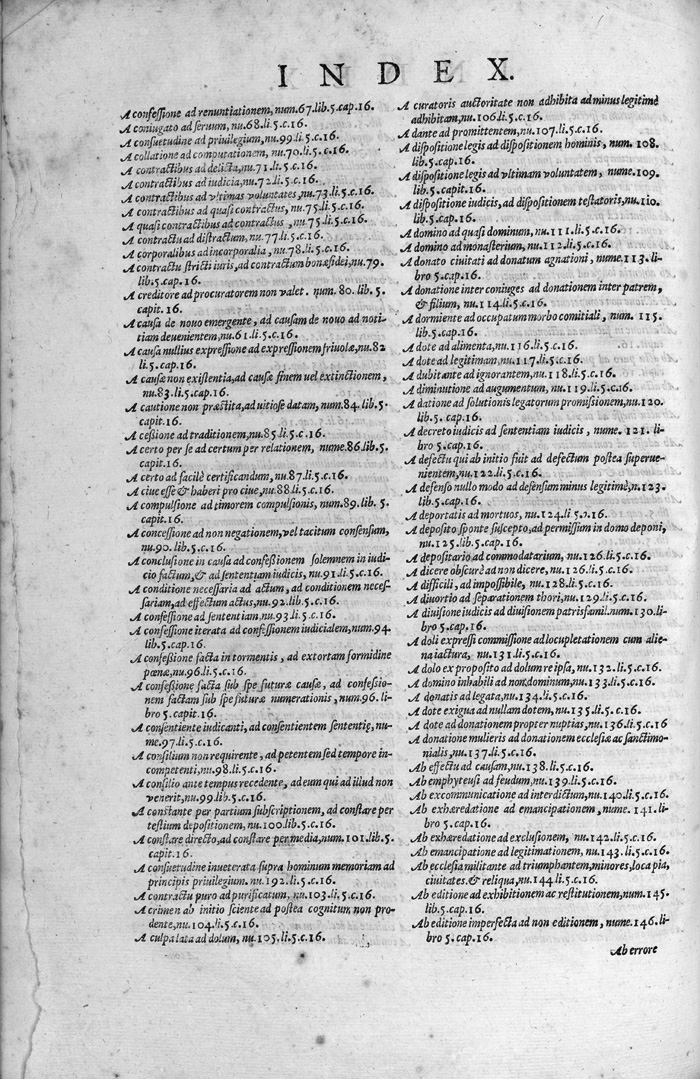 INDEX.
A confessione ad renuntiationem, num.67.lib.5.cap.16.
A coniugato ad seruum, nu.68.li.5.c.16.
A consuetudine ad priuilegium, nu.99.li.5.c.16.
A collatione ad computationem, nu.70.li.5.c.16.
A contractibus ad delicta, nu.71.li.5.c.16.
A contractibus ad iudicia, nu.72.li.5.c.16.
A contractibus ad vltimas voluntates, nu.73.li.5.c.16.
A contractibus ad quasi contractus, nu.75.li.5.c.16.
A quasi contractibus ad contractus, nu.75.li.5.c.16.
A contractu ad distractum, nu.77.li.5.c.16.
A corporalibus ad incorporalia, nu.78.li.5.c.16.
A contractu stricti iuris, ad contractum bonæ fidei, nu.79.
lib.5.cap.16.
A creditore ad procuratorem non valet. num. 80. lib. 5.
capit. 16.
A causa de nouo emergente, ad causam de nouo ad noti-
tiam deuenientem, nu.61.li.5.c.16.
A causa nullius expressione ad expressionem friuolæ, nu.82
li.5.cap.16.
A causæ non existentia, ad causæ finem uel extinctionem,
nu.83.li.5.cap.16.
A cautione non præstita, ad uitiose datam, num.84. lib.5.
capit.16.
A cessione ad traditionem, nu.85.li.5.c.16.
A certo per se ad certum per relationem, nume.86.lib.5.
capit.16.
A certo ad facilè certificandum, nu.87.li.5.c.16.
A ciue esse & haberi pro ciue, nu.88.li.5.c.16.
A compulsione ad timorem compulsionis, num.89. lib. 5.
capit.16.
A concessione ad non negationem, vel tacitum consensum,
nu.90.lib.5.c.16.
A conclusione in causa ad confessionem solemnem in iudi-
cio factum, & ad sententiam iudicis, nu.91.li.5.c.16.
A conditione necessaria ad actum, ad conditionem neces-
sariam, ad effectum actus, nu.92.lib.5.c.16.
A confessione ad sententiam, nu.93.li.5.c.16.
A confessione iterata ad confessionem iudicialem, num.94.
lib.5.cap.16.
A confessione facta in tormentis, ad extortam formidine
pœnæ, nu.96.li.5.c.16.
A confessione facta sub spe futuræ causæ, ad confessio-
nem factam sub spe futuræ numerationis, num.96. li-
bro 5.capit.16.
A consentiente iudicanti, ad consentientem sententiæ, nu-
me.97.li.5.c.16.
A consilium non requirente, ad petentem sed tempore in-
competenti, nu.98.li.5.c.16.
A consilio ante tempus recedente, ad eum qui ad illud non
venerit, nu.99.lib.5.c.16.
A constante per partium subscriptionem, ad constare per
testium depositionem, nu.100.lib.5.c.16.
A constare directo, ad constare per media, num.101.lib.5.
capit.16.
A consuetudine inueterata supra hominum memoriam ad
principis priuilegium. nu.192.li.5.c.16.
A contractu puro ad purificatum, nu.103.li.5.c.16.
A crimen ab initio sciente ad postea cognitum non pro-
dente, nu.104.li.5.c.16.
A culpa lata ad dolum, nu.105.li.5.c.16.
A curatoris auctoritate non adhibita ad minus legitimè
adhibitam, nu.106.li.5.c.16.
A dante ad promittentem, nu.107.li.5.c.16.
A dispositione legis ad dispositionem hominis, num. 108.
lib.5.cap.16.
A dispositione legis ad vltimam voluntatem, nume.109.
lib.5.capit.16.
A dispositione iudicis, ad dispositionem testatoris, nu.110.
lib.5.cap.16.
A domino ad quasi dominum, nu.111.li.5.c.16.
A domino ad monasterium, nu.112.li.5.c.16.
A donato ciuitati ad donatum agnationi, nume.113.li-
bro 5.cap.16.
A donatione inter coniuges ad donationem inter patrem,
& filium, nu.114.li.5.c.16.
A dormiente ad occupatum morbo comitiali, num. 115.
lib.5.cap.16.
A dote ad alimenta, nu.116.li.5.c.16.
A dote ad legitimam, nu.117.li.5.c.16.
A dubitante ad ignorantem, nu.118.li.5.c.16.
A diminutione ad augumentum, nu.119.li.5.c.16.
A datione ad solutionis legatorum promissionem, nu.120.
lib.5.cap.16.
A decreto iudicis ad sententiam iudicis, nume. 121. li-
bro 5.cap.16.
A defectu qui ab initio fuit ad defectum postea superue-
nientem, nu.122.li.5.c.16.
A defenso nullo modo ad defensum minus legitimè, n.123.
lib.5.cap.16.
A deportatis ad mortuos, nu.124.li 5.c.16.
A deposito sponte suscepto, ad permissum in domo deponi,
nu.125.lib.5.cap.16.
A depositario ad commodatarium, nu.126.li.5.c.16.
A dicere obscurè ad non dicere, nu.126.li.5.c.16.
A difficili, ad impossibile, nu.128.li.5.c.16.
A diuortio ad separationem thori, nu.129.li.5.c.16.
A diuisione iudicis ad diuisionem patrisfamil.num.130.li-
bro 5.cap.16.
A doli expressi commissione ad locupletationem cum alie-
na iactura, nu.131.li.5.c.16.
A dolo ex proposito ad dolum re ipsa, nu.132.li.5.c.16.
A domino inhabili ad non dominum, nu.133.li.5.c.16.
A donatis ad legata, nu.134.li.5.c.16.
A dote exigua ad nullam dotem, nu.135.li.5.c.16.
A dote ad donationem propter nuptias, nu.136.li.5.c.16
A donatione mulieris ad donationem ecclesiæ ac sanctimo-
nialis, nu.137.li.5.c.16.
Ab effectu ad causam, nu.138.li.5.c.16.
Ab emphyteusi ad feudum, nu.139.li.5.c.16.
Ab excommunicatione ad interdictum, nu.140.li.5.c.16.
Ab exhæredatione ad emancipationem, nume. 141.li-
bro 5.cap.16.
Ab exhæredatione ad exclusionem, nu.142.li.5.c.16.
Ab emancipatione ad legitimationem, nu.143.li.5.c.16.
Ab ecclesia militante ad triumphantem, minores, loca pia,
ciuitates.& reliqua, nu.144.li.5.c.16.
Ab editione ad exhibitionem ac restitutionem, num.145.
lib.5.cap.16.
Ab editione imperfecta ad non editionem, nume.146.li-
bro 5.cap.16.
Ab errore